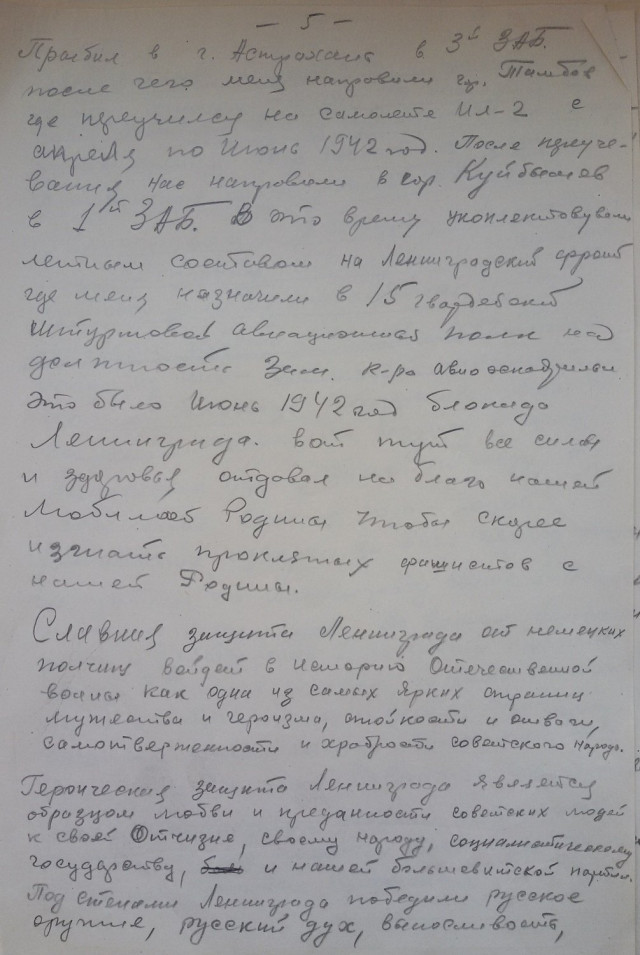 — 5 —
Прибыл в г. Астрахань в 3й ЗАБ.
после чего меня направили гор. Тамбов
где переучился на самолете Ил-2 с
апреля по Июнь 1942 год. После переуче-
вания нас направили в гор. Куйбышев
в 1ый ЗАБ. В это время укоплектовували
летным составом на Ленинградский фронт
где меня назначили в 15 гвардейский
штурмовой авиационный полк на
должность Зам. к-ра авиоэскадрильи
Это было Июнь 1942 год блокада
Ленинграда. вот тут все силы
и здоровья отдавал на благо нашей
Любимой Родины чтобы скорее
изгнать проклятых фашистов с
нашей Родины.
Славная защита Ленинграда от немецких
полчищ войдет в историю Отечественной
войны как одна из самых ярких страниц
мужества и героизма, стойкости и отваги,
самоотверженности и храбрости советского народа.
Героическая защита Ленинграда является
образцом любви и преданности советских людей
к своей Отчизне, своему народу, социалистическому
государству, и нашей большевитской партии.
Под стенами Ленинграда победили русское
оружие, русский дух, выносливость,